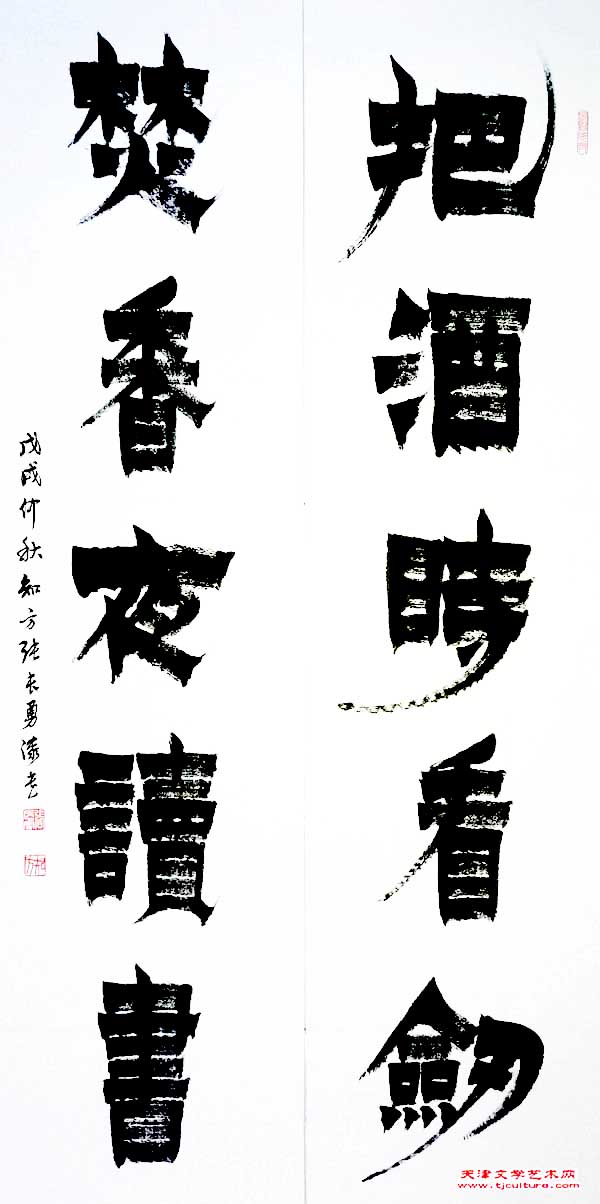 把酒時看劔
焚香夜讀書
戊戌仲秋知方張長勇漆書
天津文学艺术网
www.tjculture.com